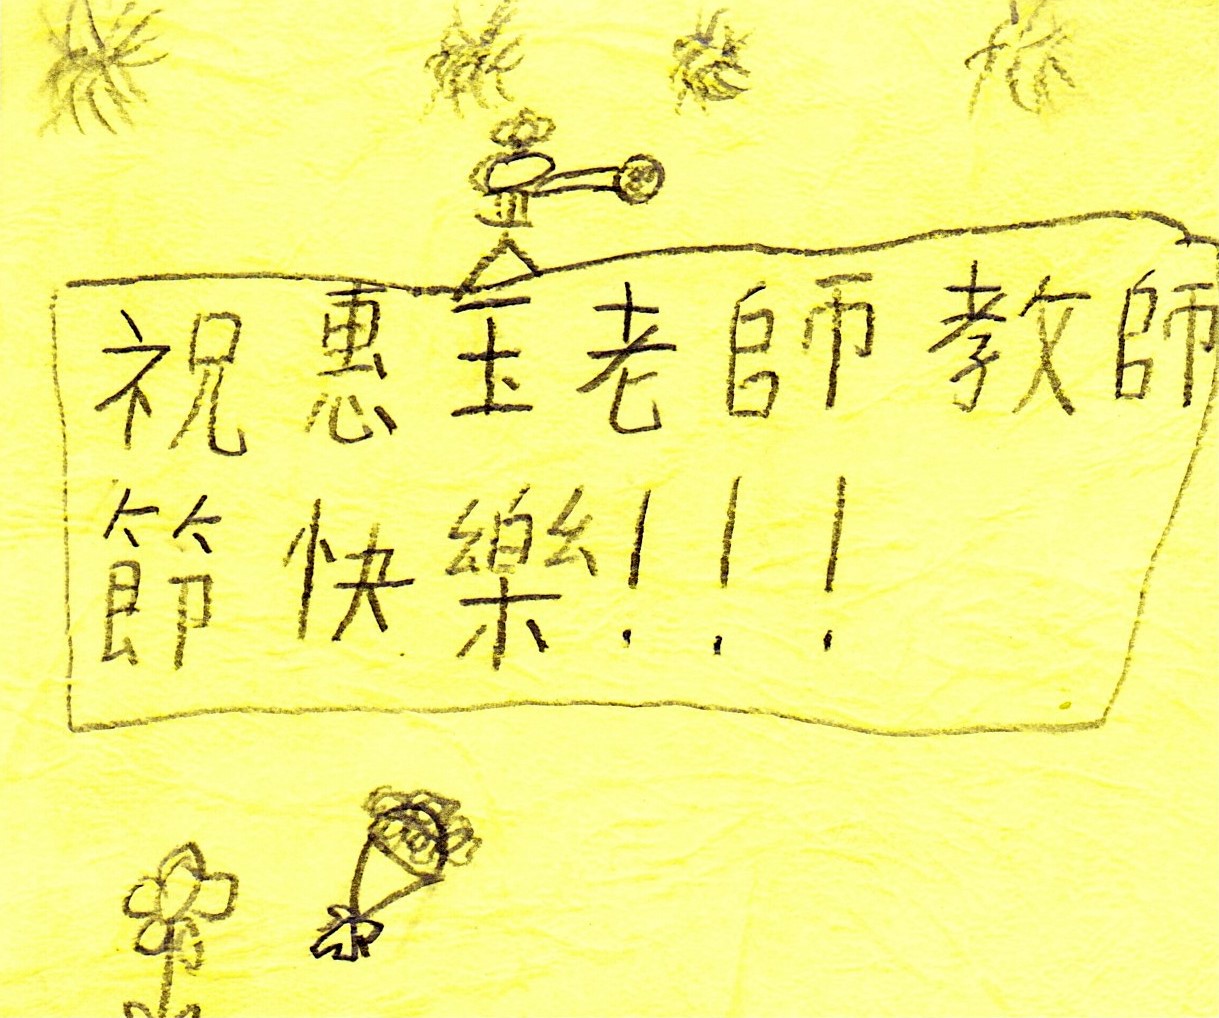 祝惠玉老師教師
節快樂!!!